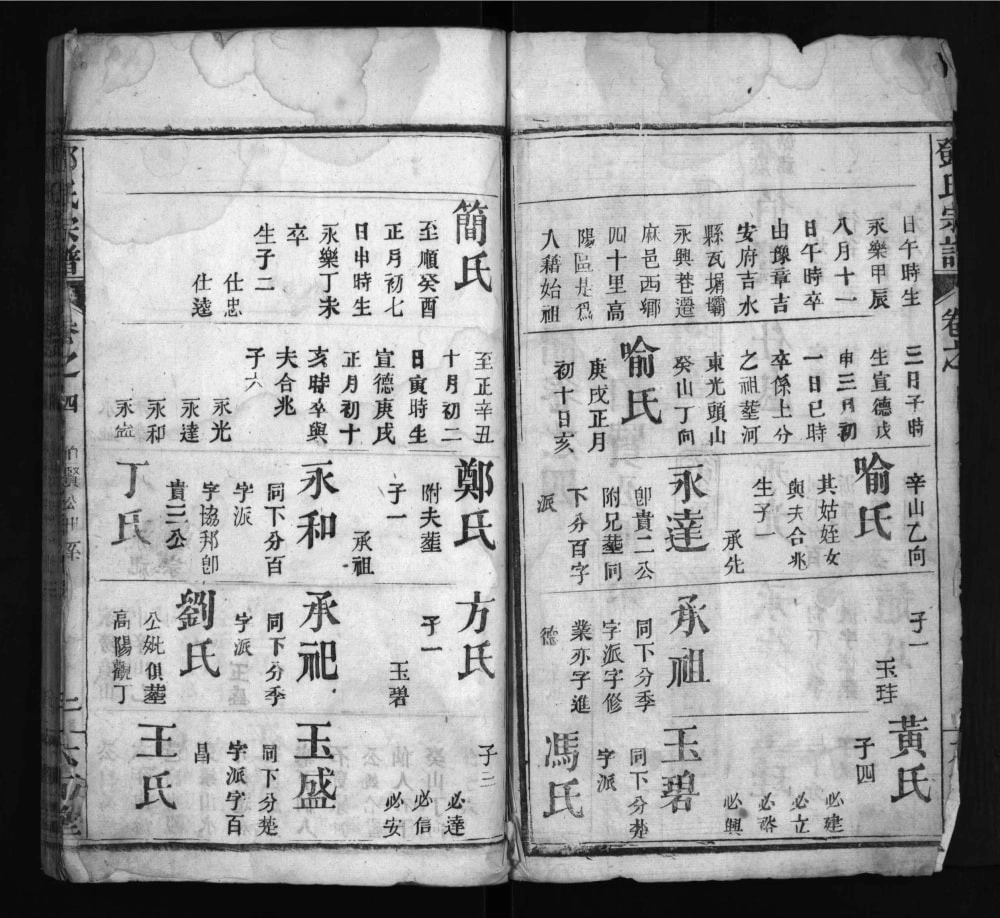 鄧氏宗譜
卷之
日午時生
永樂甲辰
八月十一
日午時卒
由豫章吉
安府吉水
縣瓦塘壩
永興巷遷
麻邑西鄉
四十里高
陽區是爲
入籍始祖
三日子時
生宣德戊
申三月初
一日巳時
卒係上分
之祖塟河
東光頭山
癸山丁向
喻氏
庚戌正月
初十日亥
辛山乙向
喻氏
其姑姪女
與夫合兆
生子一
承先
永達
卽貴二公
附兄塟同
下分百字
派
子一
玉珪
承祖
同下分季
字派字修
業亦字進
德
黃氏
子四
必建
必立
必諮
必興
玉碧
同下分楚
字派
馮氏
簡氏
至順癸酉
正月初七
日申時生
永樂丁未
卒
生子二
仕忠
仕逵
至正辛丑
十月初二
日寅時生
宣德庚戌
正月初十
亥時卒與
夫合兆
子六
永光
永達
永和
鄭氏
附夫塟
子一
承祖
永和
同下分百
字派
字協邦卽
貴三公
丁氏
方氏
子一
玉碧
承祀
同下分季
字派
劉氏
公妣俱塟
高陽觀丁
子三
必達
必信
必安
玉盛
同下分楚
字派字百
昌
王氏
氏宗譜
卷之四